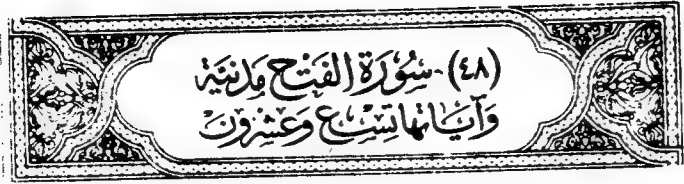 (٤٨) - سُورَة الفَتْح مَدَنِيَّة
وَآيَاتُهَا تِسْعٌ وَعِشْرُونَ